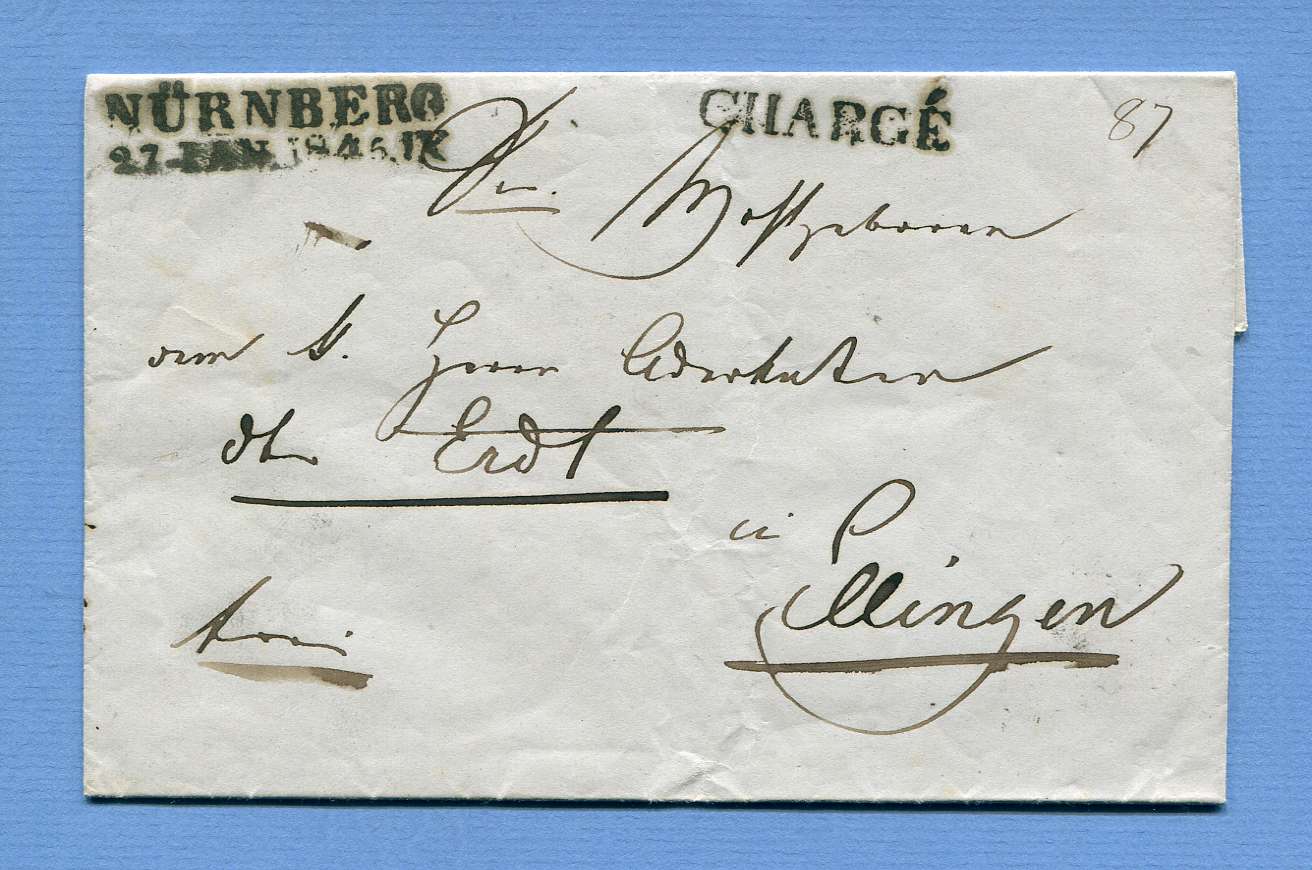 NÜRNBERG
27 JAN 1846 IX
CHARGÉ
87
Sr. Wohlgeboren
dem k. Herrn Advokaten
Dr. Erdt
in
Ellingen
frei